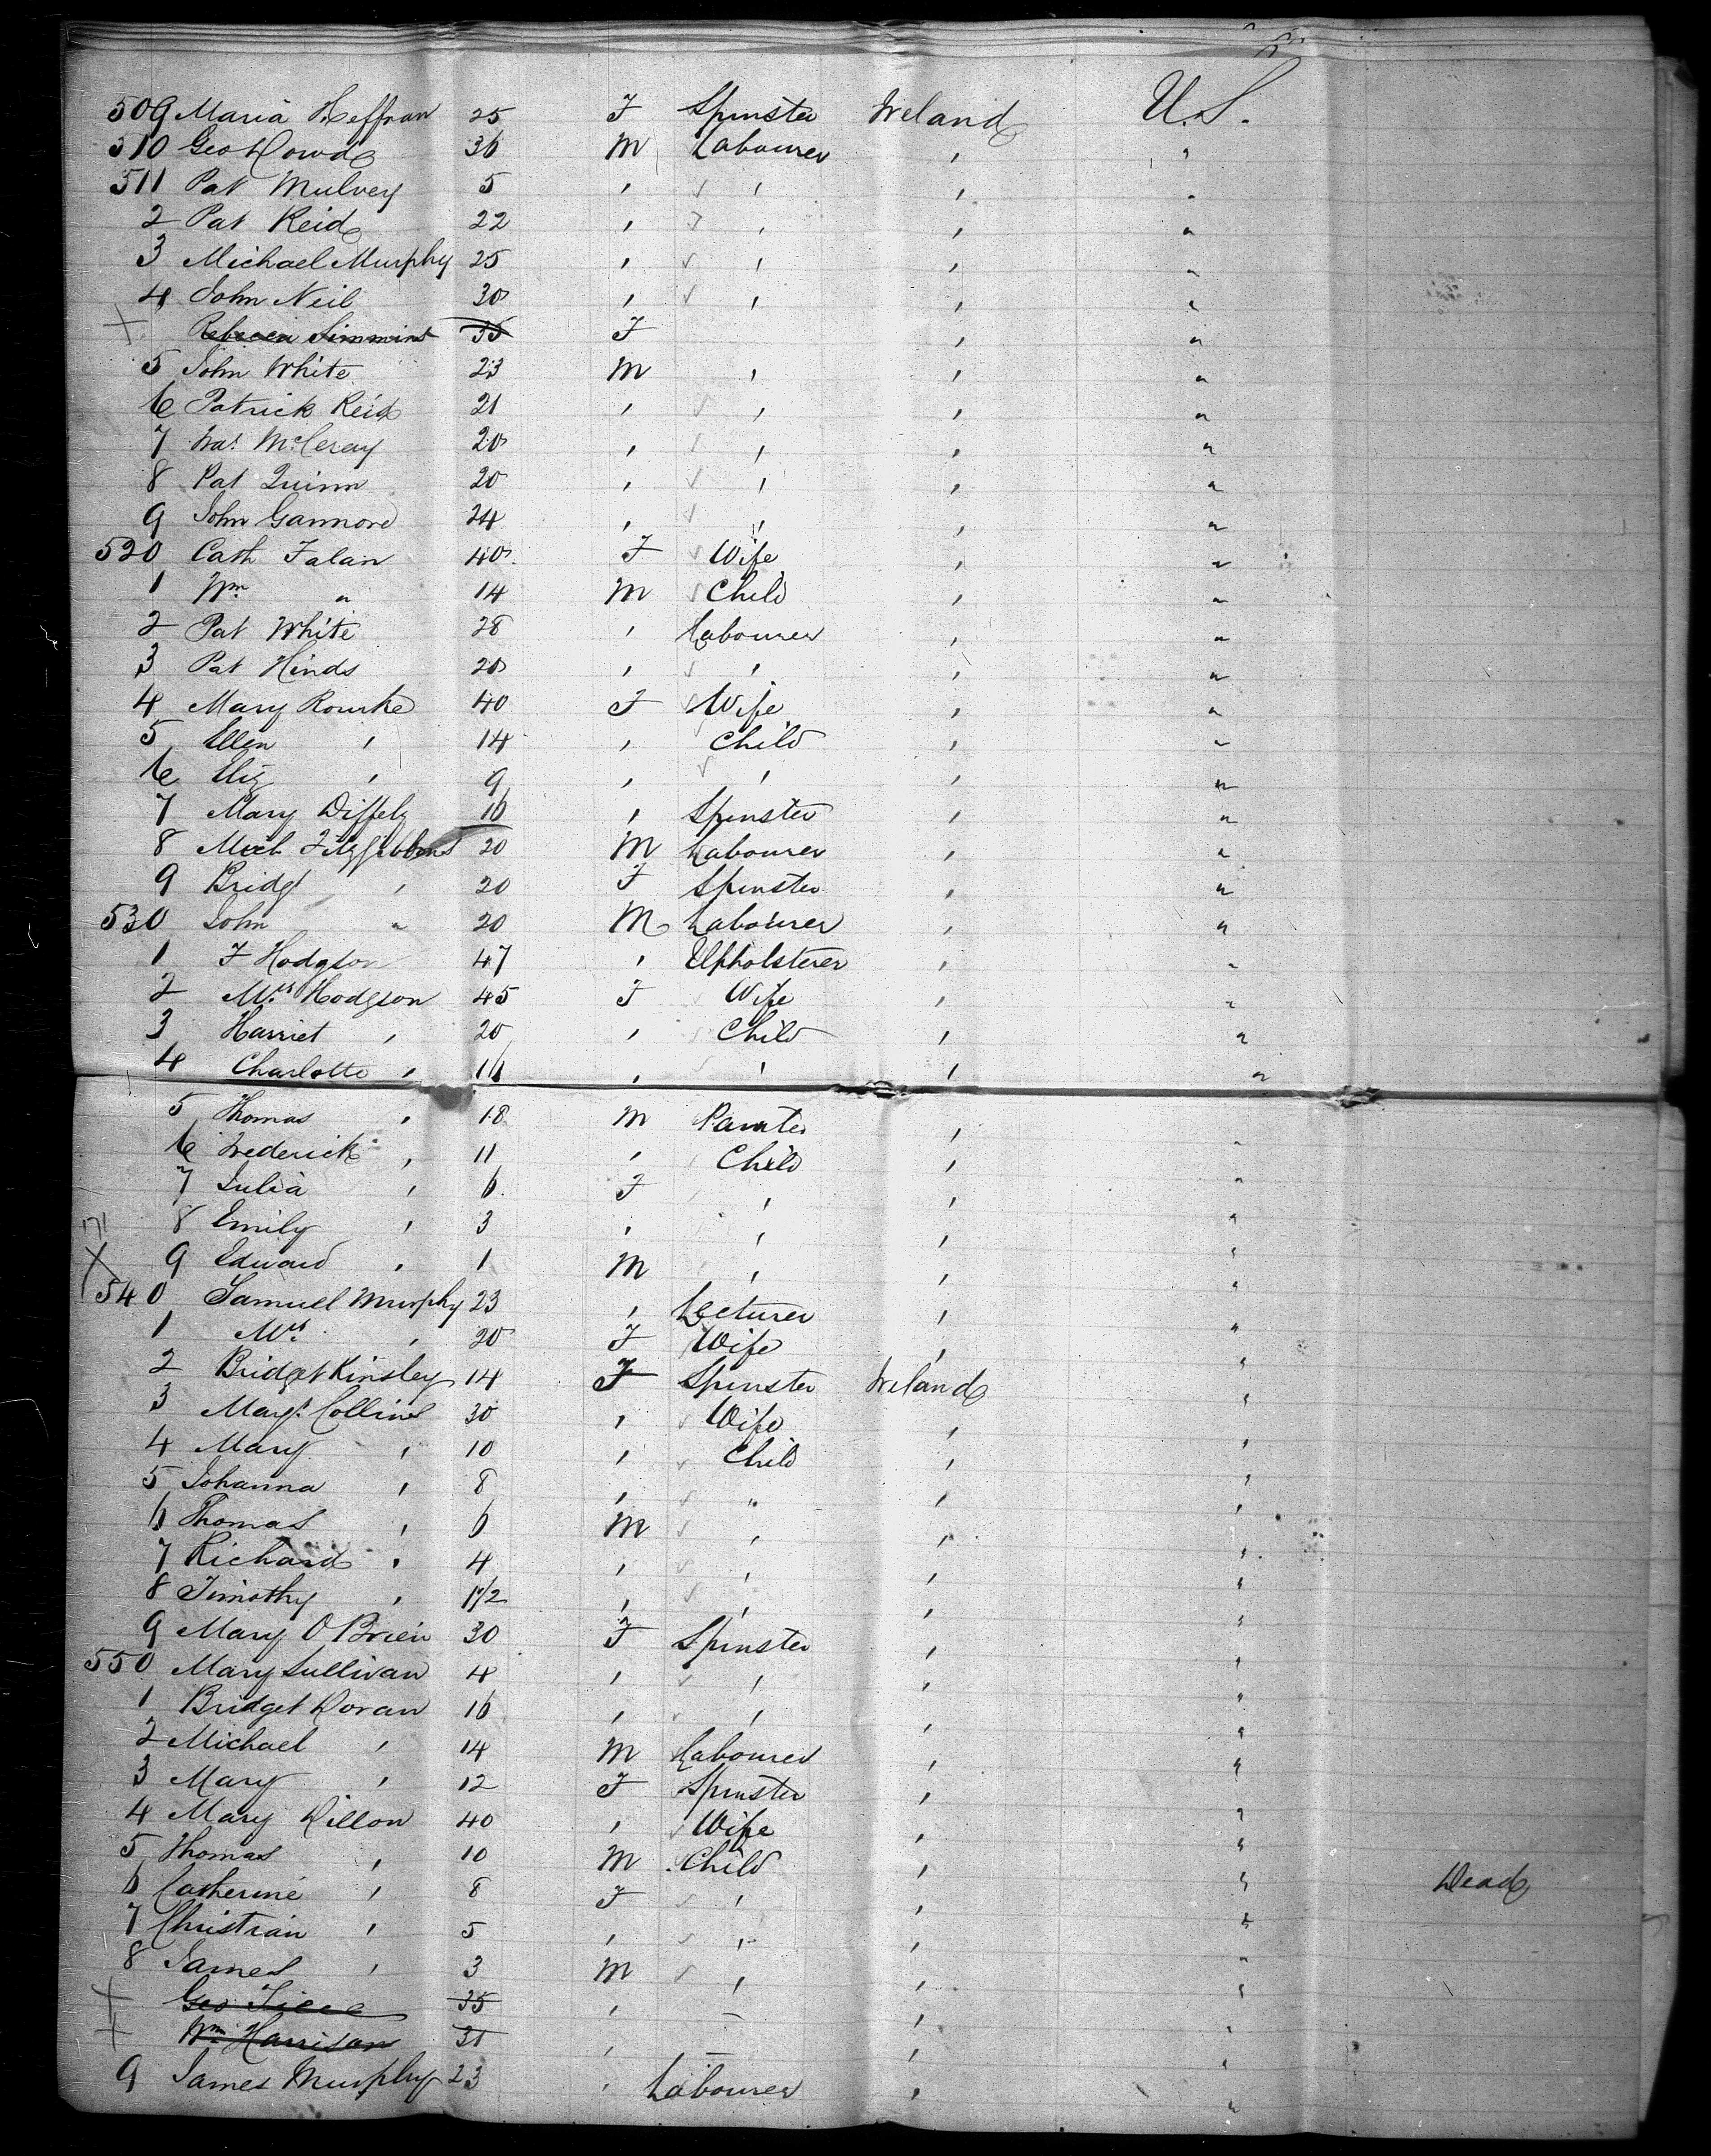 509 Maria Heffran 25 F Spinster Ireland U.S.
510 Geo Dowd 36 M Labourer , "
511 Pat Mulvey 5 , , , "
2 Pat Reid 22 , , , "
3 Michael Murphy 25 , , , "
4 John Neil 30 , , , "
Rebecca Simmins 35 F , "
5 John White 23 M , , "
6 Patrick Reid 21 , , , "
7 20 , , , "
8 Pat Quinn 20 , , , "
9 John Ganmore 24 , , , "
520 Cath Falan 40 F Wife , "
1 Wm " 14 M Child , "
2 Pat White 28 , Labourer , "
3 Pat Hinds 20 , , , "
4 Mary Rourke 40 F Wife , "
5 Ellen , 14 , Child , "
6 Eliz , 9 , , , "
7 Mary 16 , Spinster , "
8 Mich Fitzgibbons 20 M Labourer , "
9 Bridgt , 20 F Spinster , "
530 John " 20 M Labourer , "
1 F Hodgson 47 , Upholsterer , "
2 Mrs Hodgson 45 F Wife , "
3 Harriet , 20 , Child , "
4 Charlotte , 16 , , , "
5 Thomas , 18 M Painter , "
6 Frederick , 11 , Child , "
7 Julia , 6 F , , "
8 Emily , 3 , , , "
9 Edward , 1 M , , "
540 Samuel Murphy 23 , Lecturer , "
1 Mrs , 20 F Wife , "
2 Bridget Kinsley 14 F Spinster Ireland "
3 Margt Collins 30 , Wife , "
4 Mary , 10 , Child , "
5 Johanna , 8 , " , "
6 Thomas , 6 M , , "
7 Richard , 4 , , , "
8 Timothy , 1 1/2 , , , "
9 Mary O Brien 30 F Spinster , "
550 Mary Sullivan 4 , , , "
1 Bridget Doran 16 , , , "
2 Michael , 14 M Labourer , "
3 Mary , 12 F Spinster , "
4 Mary Dillon 40 , Wife , "
5 Thomas , 10 M Child , "
6 Catherine , 8 F , , " Dead
7 Christian , 5 , , , "
8 James , 3 M , , "
Geo 35 , – , "
Wm Harrison 31 , – , "
9 James Murphy 23 , Labourer , "